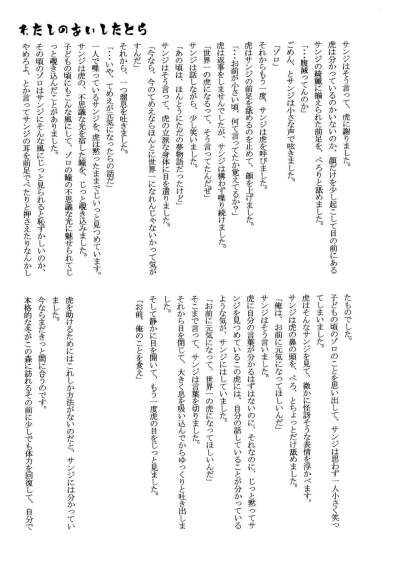 わたしのあいしたとら
サンジはそう言って、虎に謝りました。
虎は分かっているのかいないのか、顔だけを少し起こして目の前にある
サンジの綺麗に揃えられた前足を、ぺろりと舐めました。
「・・腹減ってんのか」
ごめん、とサンジは小さな声で呟きました。
「ゾロ」
それからもう一度、サンジは虎を呼びました。
虎はサンジの前足を舐めるのを止めて、顔を上げました。
「・・お前が小さい頃、何て言ってたか覚えてるか？」
虎は返事をしませんでしたが、サンジは構わず喋り続けました。
「世界一の虎になるって、そう言ってたんだぜ」
サンジは話しながら、少し笑いました。
「あの頃は、ほんとうにただの夢物語だったけど」
サンジはそう言って、虎の立派な身体に目を遣りました。
「今なら、今のてめえならほんとに世界一になれんじゃないかって気が
すんだ」
それから、一つ溜息を吐きました。
「・・いや、てめえが元気になったらの話だ」
一人で喋っているサンジを、虎は黙ったままでじいっと見つめています。
サンジは虎の、不思議な光を宿した瞳を、じっと覗き込みました。
子どもの頃にもこんな風にして、ゾロの瞳の不思議な光に魅せられてじ
っと覗き込んだことがありました。
その頃のゾロはサンジにそんな風にじっと見られると恥ずかしいのか、
やめろよ、とか言ってサンジの耳を前足でぺたりと押さえたりなんかし
たものでした。
子どもの頃のゾロのことを思い出して、サンジは思わず一人小さく笑っ
てしまいました。
虎はそんなサンジを見て、微かに怪訝そうな表情を浮かべます。
サンジは虎の鼻の頭を、ぺろ、とちょっとだけ舐めました。
「俺は、お前に元気になってほしいんだ」
サンジはそう言いました。
虎に自分の言葉が分かるはずはないのに、それなのに、じっと黙ってサ
ンジを見つめているこの虎には、自分の話していることが分かっている
ような気が、サンジにはしていました。
「お前に元気になって、世界一の虎になってほしいんだ」
そこまで言って、サンジは言葉を切りました。
それから目を閉じて、大きく息を吸い込んでからゆっくりと吐き出しま
した。
そして静かに目を開いて、もう一度虎の目をじっと見ました。
「お前、俺のことを食え」
虎を助けるためにはこれしか方法がないのだと、サンジには分かってい
ました。
今ならまだきっと間に合うのです。
本格的な冬がこの森に訪れるその前に少しでも体力を回復して、自分で